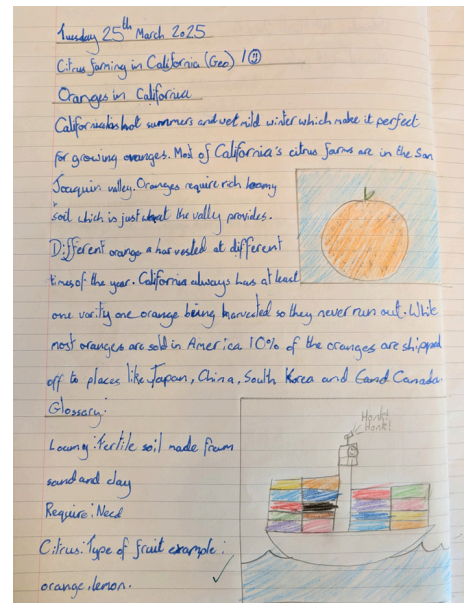 Tuesday 25th March 2025
Citrus farming in California (Geo) 1☺
Oranges in California
California has hot summers and wet mild winter which make it perfect
for growing oranges. Most of California's citrus farms are in the San
Joaquin valley. Oranges require rich loamy
soil which is just what the vally provides.
Different orange a harvested at different
times of the year. California always has at least
one varity one orange being harvested so they never run out. While
most oranges are sold in America 10% of the oranges are shipped
off to places like Japan, China, South Korea and Canada.
Glossary:
Honk!
Honk!
Loamy: Fertile soil made from
sand and clay
Require: Need
Citrus: Type of fruit example:
orange, lemon.